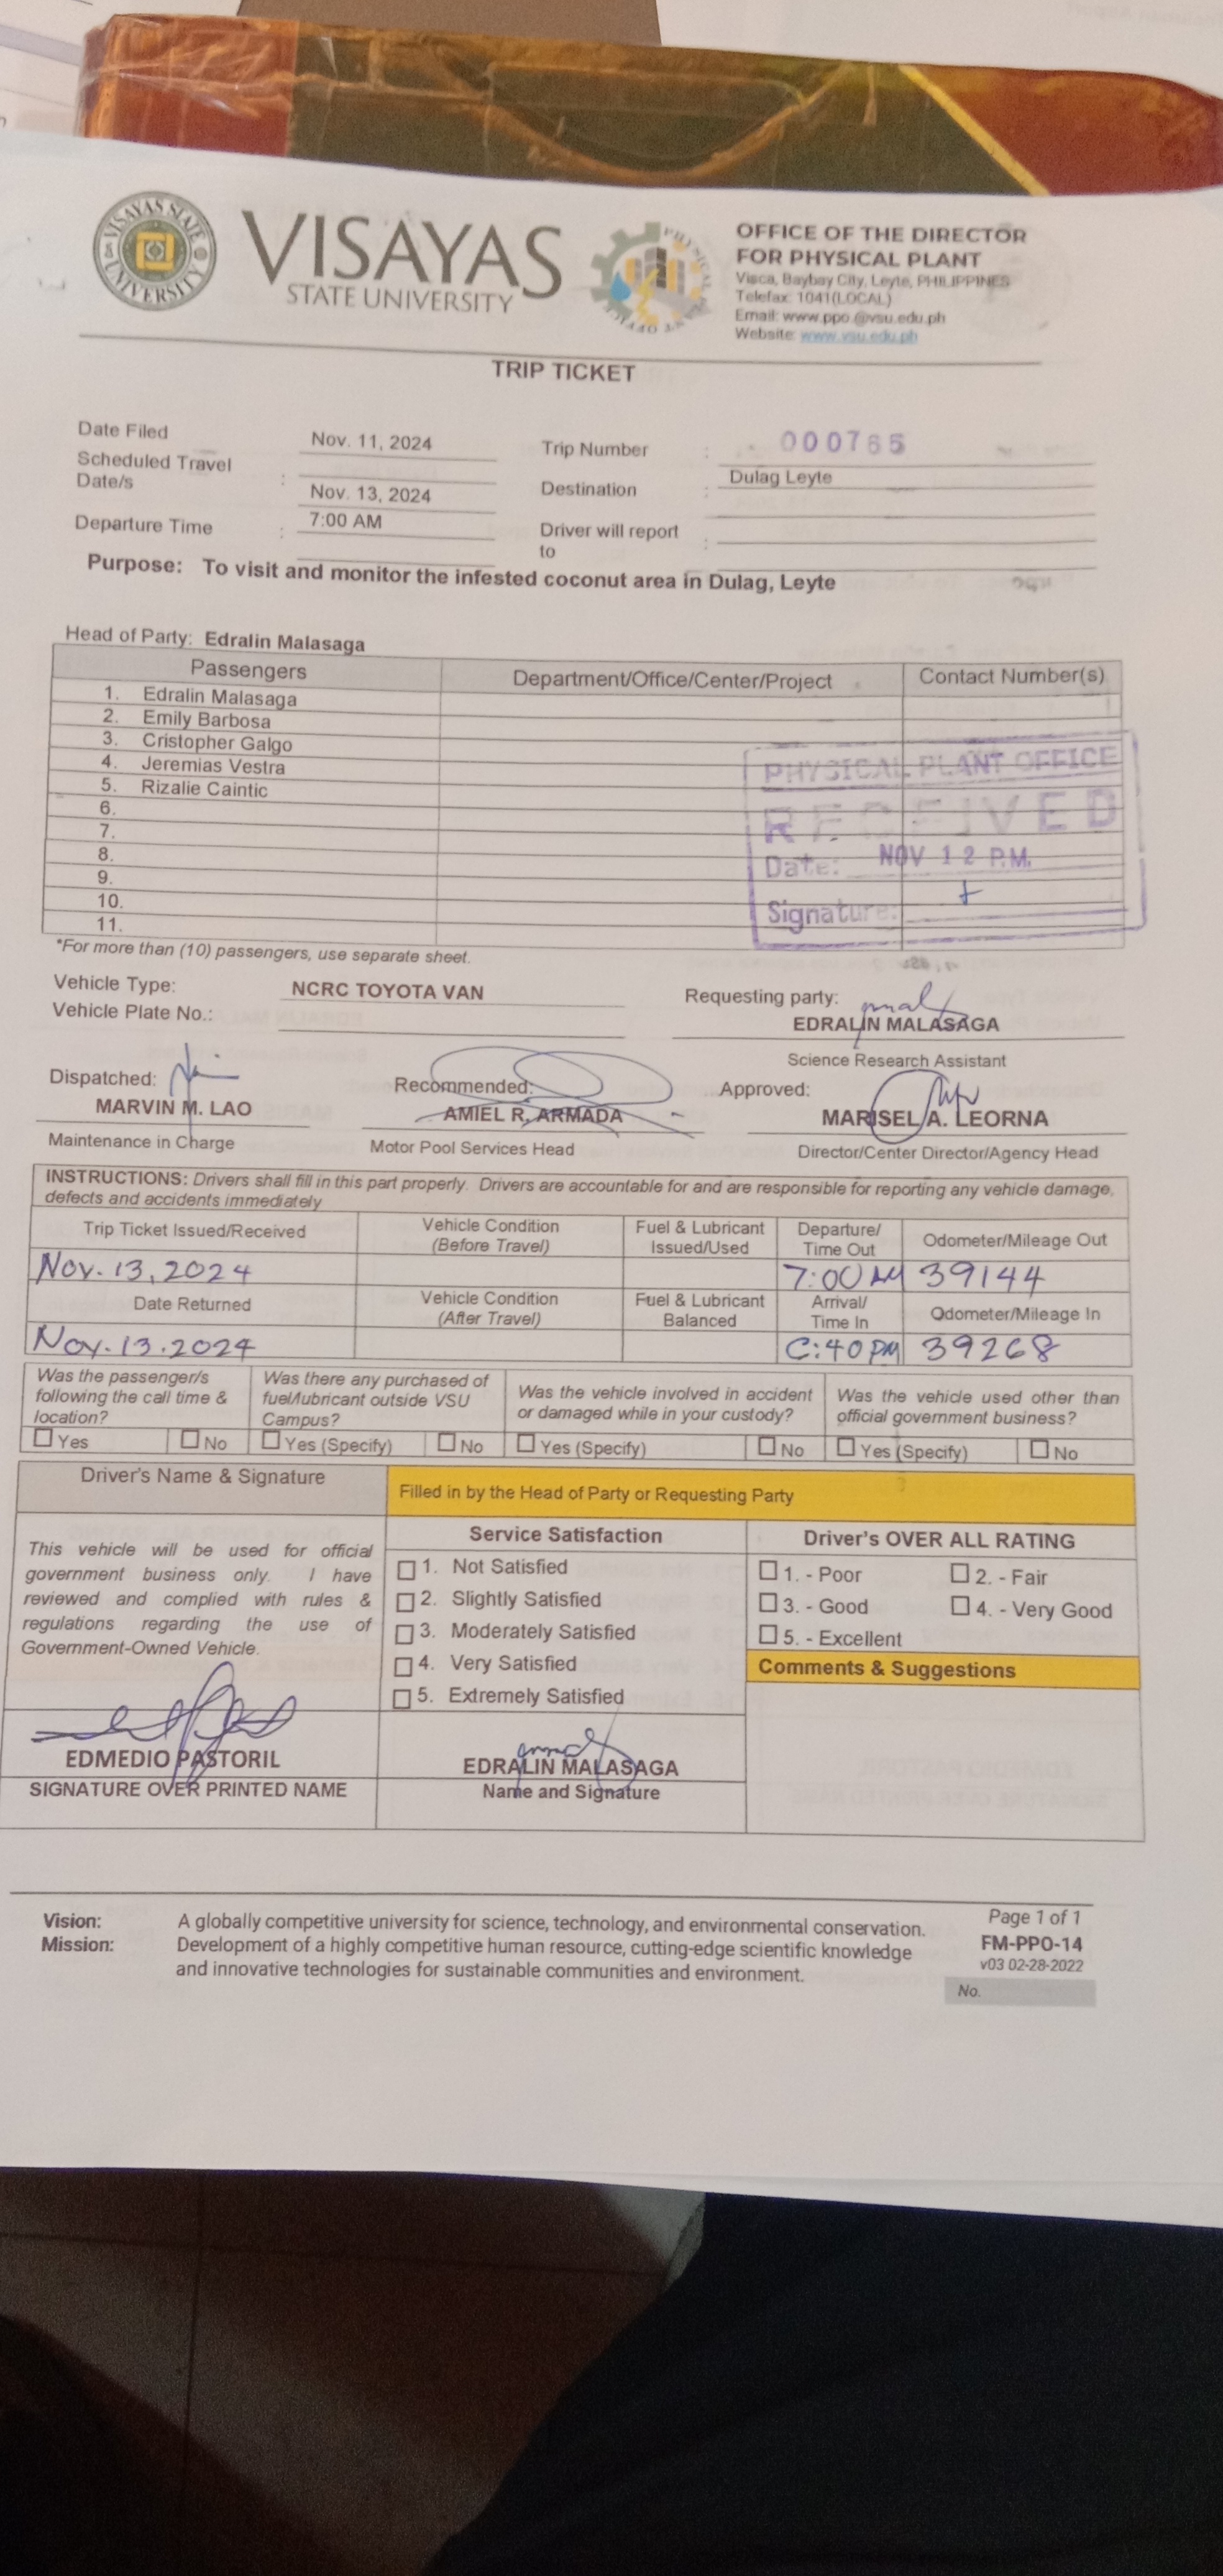 VISAYAS STATE UNIVERSITY
VISAYAS
STATE UNIVERSITY
OFFICE OF THE DIRECTOR
FOR PHYSICAL PLANT
Visca, Baybay City, Leyte, PHILIPPINES
Telefax: 1041(LOCAL)
Email: www.ppo.@vsu.edu.ph
Website: www.vsu.edu.ph
TRIP TICKET
Date Filed Nov. 11, 2024 Trip Number : 000765
Scheduled Travel Date/s : Nov. 13, 2024 Destination : Dulag Leyte
Departure Time : 7:00 AM Driver will report to :
Purpose: To visit and monitor the infested coconut area in Dulag, Leyte
Head of Party: Edralin Malasaga
Passengers Department/Office/Center/Project Contact Number(s)
1. Edralin Malasaga
2. Emily Barbosa
3. Cristopher Galgo
4. Jeremias Vestra
5. Rizalie Caintic
6.
7.
8.
9.
10.
11.
PHYSICAL PLANT OFFICE
RECEIVED
Date: NOV 12 P.M.
Signature:
*For more than (10) passengers, use separate sheet.
Vehicle Type: NCRC TOYOTA VAN Requesting party:
Vehicle Plate No.: EDRALIN MALASAGA
Science Research Assistant
Dispatched: Recommended: Approved:
MARVIN M. LAO AMIEL R. ARMADA MARISEL A. LEORNA
Maintenance in Charge Motor Pool Services Head Director/Center Director/Agency Head
INSTRUCTIONS: Drivers shall fill in this part properly. Drivers are accountable for and are responsible for reporting any vehicle damage,
defects and accidents immediately
Trip Ticket Issued/Received Vehicle Condition (Before Travel) Fuel & Lubricant Issued/Used Departure/ Time Out Odometer/Mileage Out
Nov. 13, 2024 7:00 AM 39144
Date Returned Vehicle Condition (After Travel) Fuel & Lubricant Balanced Arrival/ Time In Odometer/Mileage In
Nov. 13. 2024 :40 PM 39268
Was the passenger/s following the call time & location? Was there any purchased of fuel/lubricant outside VSU Campus? Was the vehicle involved in accident or damaged while in your custody? Was the vehicle used other than official government business?
Yes No Yes (Specify) No Yes (Specify) No Yes (Specify) No
Driver's Name & Signature Filled in by the Head of Party or Requesting Party
Service Satisfaction Driver's OVER ALL RATING
This vehicle will be used for official
government business only. I have
reviewed and complied with rules &
regulations regarding the use of
Government-Owned Vehicle.
1. Not Satisfied
2. Slightly Satisfied
3. Moderately Satisfied
4. Very Satisfied
5. Extremely Satisfied
1. - Poor 2. - Fair
3. - Good 4. - Very Good
5. - Excellent
Comments & Suggestions
EDMEDIO PASTORIL EDRALIN MALASAGA
SIGNATURE OVER PRINTED NAME Name and Signature
Vision: A globally competitive university for science, technology, and environmental conservation.
Mission: Development of a highly competitive human resource, cutting-edge scientific knowledge
and innovative technologies for sustainable communities and environment.
Page 1 of 1
FM-PPO-14
v03 02-28-2022
No.